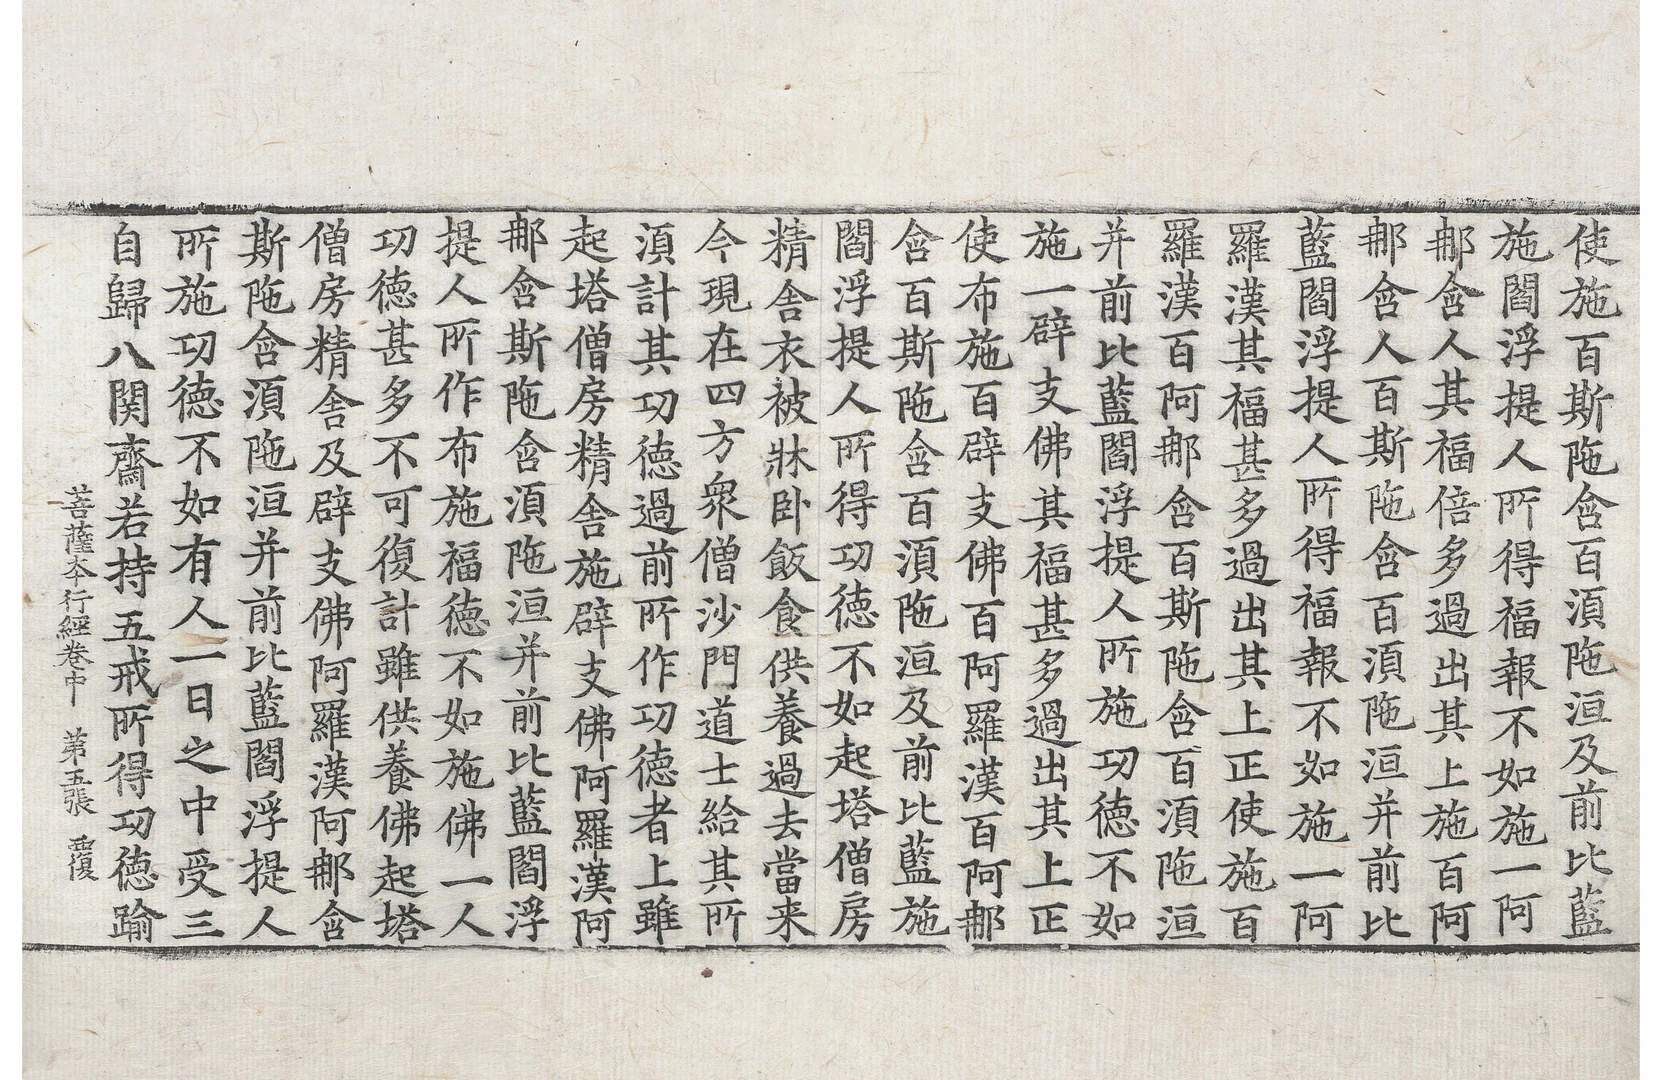 使施百斯陁含百湏陁洹及前比藍
施閻浮提人所得福報不如施一阿
那含人其福倍多過出其上施百阿
那含人百斯陁含百湏陁洹并前比
藍閻浮提人所得福報不如施一阿
羅漢其福甚多過出其上正使施百
羅漢百阿那含百斯陁含百湏陁洹
并前比藍閻浮提人所施功德不如
施一辟支佛其福甚多過出其上正
使布施百辟支佛百阿羅漢百阿那
含百斯陁含百湏陁洹及前比藍施
閻浮提人所得功德不如起塔僧房
精舍衣被牀卧飯食供養過去當来
今現在四方衆僧沙門道士給其所
湏計其功德過前所作功德者上雖
起塔僧房精舍施辟支佛阿羅漢阿
那含斯陁含湏陁洹并前比藍閻浮
提人所作布施福德不如施佛一人
功德甚多不可復計雖供養佛起塔
僧房精舍及辟支佛阿羅漢阿那含
斯陁含湏陁洹并前比藍閻浮提人
所施功德不如有人一日之中受三
自歸八関齋若持五戒所得功德踰
菩薩夲行經卷中 第五張 𠃵復